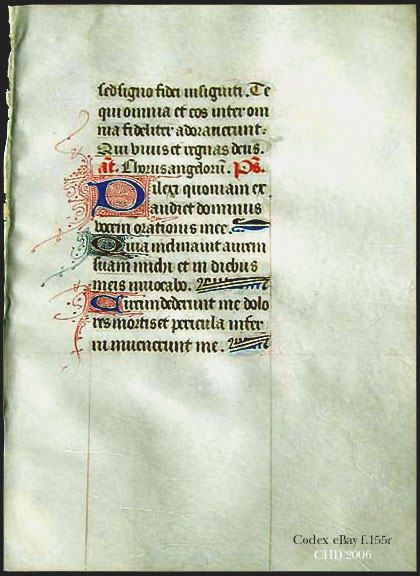 sed signo fidei insigniti. Te
qui omnia et eos inter om
nia fideliter adorauerunt.
Qui viuis et regnas deus.
añ. Chorus angelorū. ps̄.
Dilexi quoniam ex
audiet dominus
vocem orationis mee.
Quia inclinauit aurem
suam michi et in diebus
meis inuocabo.
Circundederunt me dolo
res mortis et pericula infer
ni inuenerunt me.
Codex eBay f.155r
CHD 2006